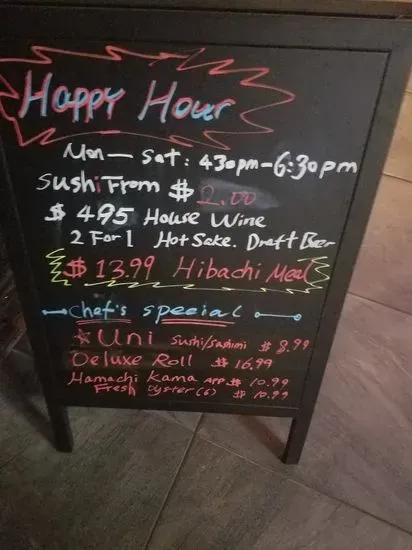 Happy Hour
Mon - Sat: 430pm-6:30pm
Sushi From $2.00
$495 House Wine
2 For 1 Hot Sake. Draft Beer
$13.99 Hibachi Meal
Chef's special
Uni Sushi/Sashimi $8.99
Deluxe Roll $16.99
Hamachi Kama App $10.99
Fresh Oyster (6) $10.99